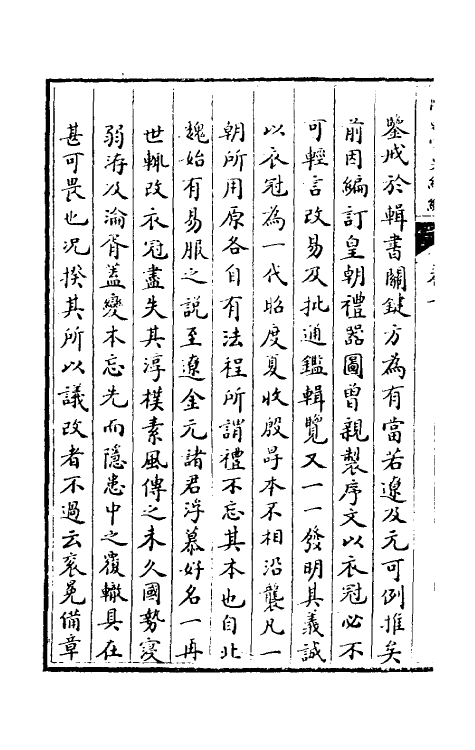 鑒戒於輯書關鍵方為有當若遼及元可例推矣
前因編訂皇朝禮器圖曾親製序文以衣冠必不
可輕言改易及批通鑑輯覽又一一發明其義誠
以衣冠為一代昭度夏收殷冔本不相沿襲凡一
朝所用原各自有法程所謂禮不忘其本也自北
魏始有易服之説至遼金元諸君浮慕好名一再
世輒改衣冠盡失其淳樸素風傳之未久國勢寖
弱洊及淪胥蓋變本忘先而隱患中之覆轍具在
甚可畏也況揆其所以議改者不過云衮冕備章